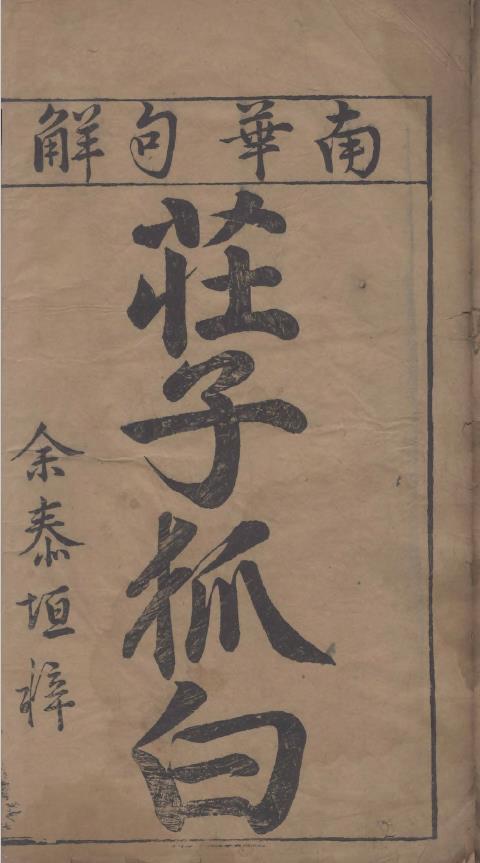 南華句解
莊子狐白
余泰垣梓